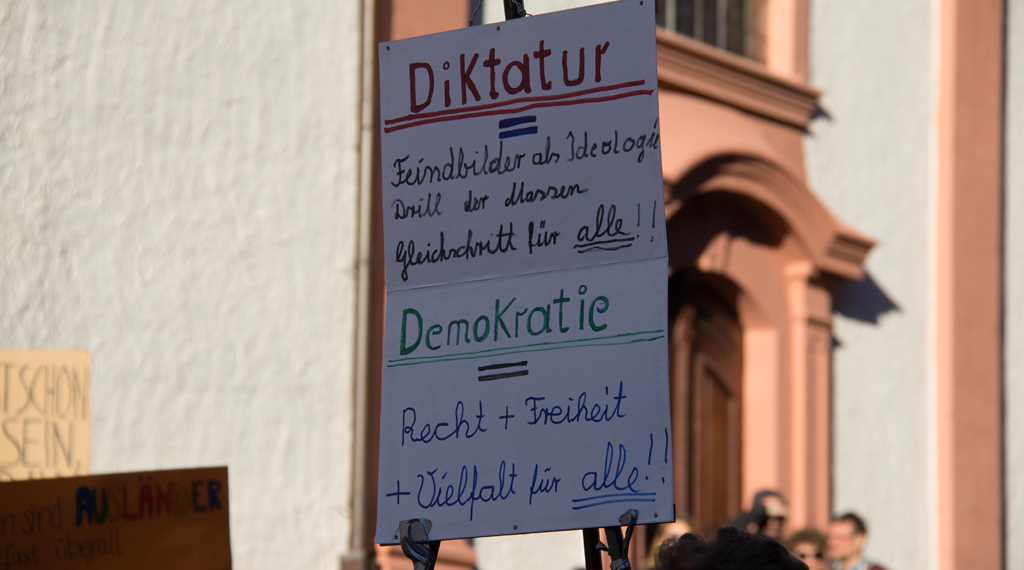 Diktatur
=
Feindbilder als Ideologie
Drill der Massen
Gleichschritt für alle!!
Demokratie
=
Recht + Freiheit
+ Vielfalt für alle!!
TSCHON
SEIN,
n sind AUSLÄNDER
fast überall